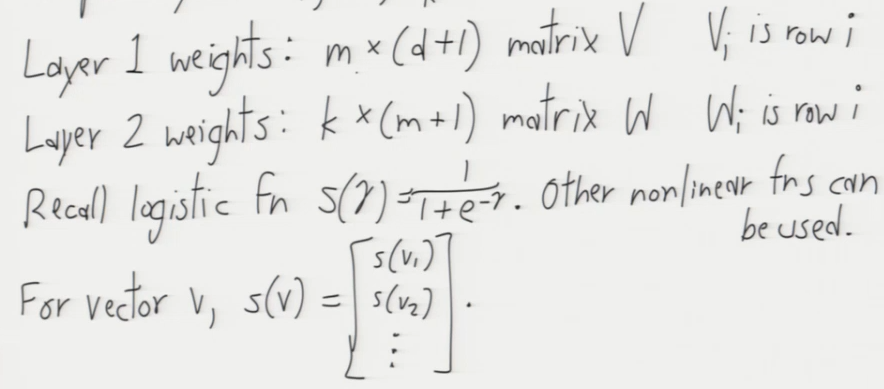 Layer 1 weights: m × (d+1) matrix V   Vᵢ is row i
Layer 2 weights: k × (m+1) matrix W   Wᵢ is row i
Recall logistic fn s(γ) = 1/(1+e^-γ). Other nonlinear fns can
be used.
For vector v, s(v) = [s(v₁)
s(v₂)
⋮].